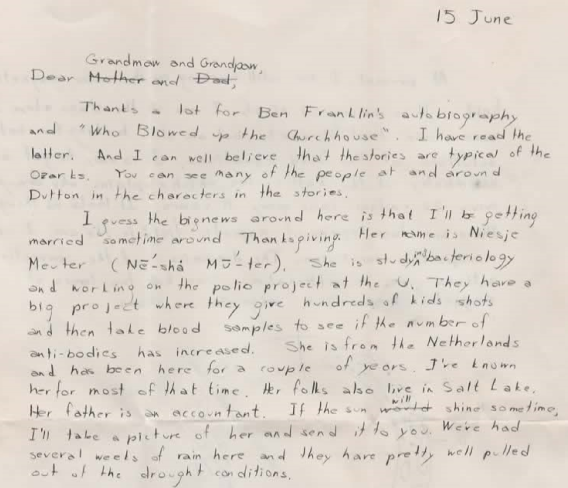 15 June
Grandmaw and Grandpaw,
Dear Mother and Dad,
Thanks a lot for Ben Franklin's autobiography
and "Who Blowed up the Churchhouse". I have read the
latter. And I can well believe that the stories are typical of the
Ozarks. You can see many of the people at and around
Dutton in the characters in the stories.
I guess the big news around here is that I'll be getting
married sometime around Thanksgiving. Her name is Niesje
Meuter (Nē'-shá Mū'-ter). She is studying bacteriology
and working on the polio project at the U. They have a
big project where they give hundreds of kids shots
and then take blood samples to see if the number of
anti-bodies has increased. She is from the Netherlands
and has been here for a couple of years. I've known
her for most of that time. Her folks also live in Salt Lake.
Her father is an accountant. If the sun would will shine sometime,
I'll take a picture of her and send it to you. We've had
several weeks of rain here and they have pretty well pulled
out of the drought conditions.